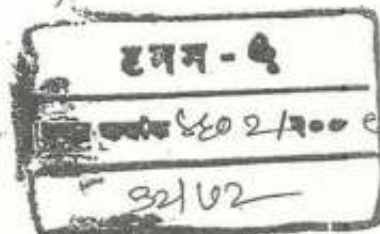 टनन - ५
क्रमांक ४६०२/२००९
३२/७२